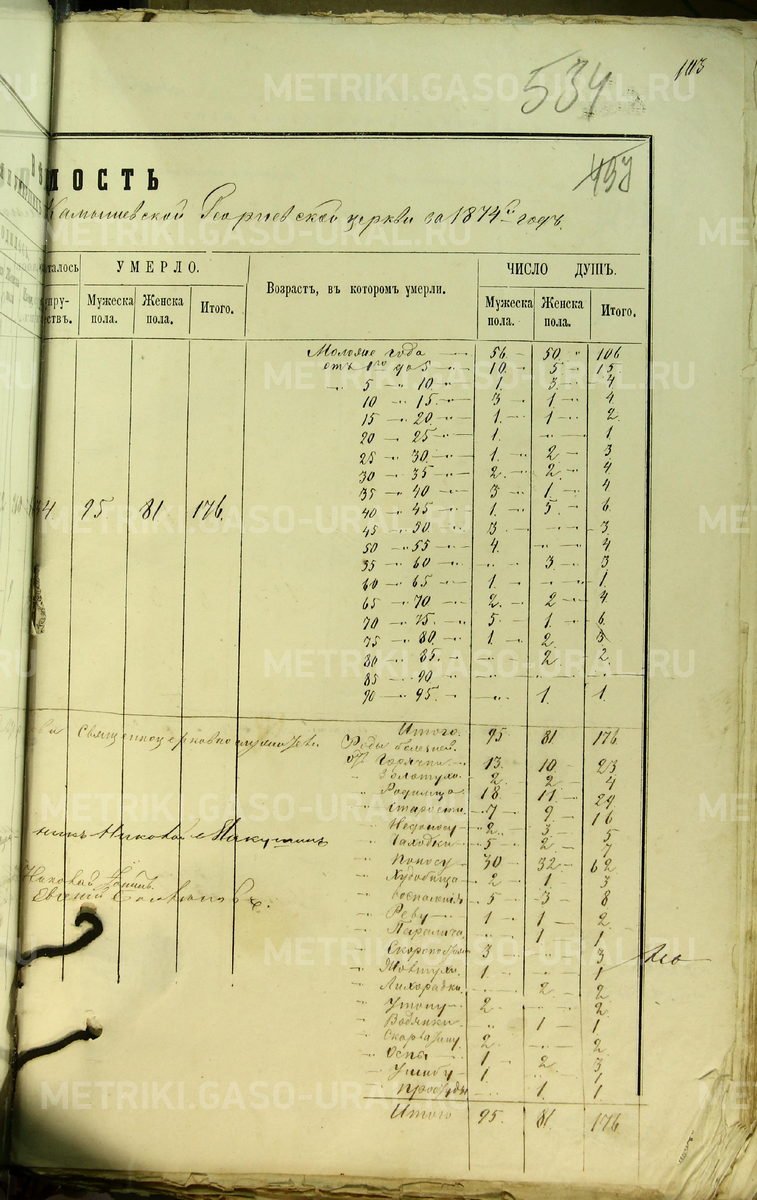 113
534
457
МОСТЬ
Камышевской Георгиевской церкви за 1874й годъ.
УМЕРЛО.
Возрастъ, въ которомъ умерли.
ЧИСЛО ДУШЪ.
Мужеска пола. Женска пола. Итого.
Мужеска пола. Женска пола. Итого.
Моложе года 56 50 106
отъ 1го до 5 10 5 15
" 5 " 10 1 3 4
10 " 15 3 1 4
15 " 20 1 1 2
20 " 25 1 " 1
25 " 30 1 2 3
30 " 35 2 2 4
35 " 40 3 1 4
40 " 45 1 5 6
95 81 176
45 " 50 3 " 3
50 " 55 4 " 4
55 " 60 " 3 3
60 " 65 1 " 1
65 " 70 2 2 4
70 " 75 5 1 6
75 " 80 1 2 3
80 " 85 " 2 2
85 " 90
90 " 95 " 1 1
Итого 95 81 176
Роды болезней.
отъ Горячки 13 10 23
" Золотухи 2 2 4
" Родимца 18 11 29
" Старости 7 9 16
" Недоносу 2 3 5
" Чахотки 5 2 7
" Поносу 30 32 62
" Худобища 2 1 3
" воспаления 5 3 8
" Реву 1 1 2
" Паралича " 1 1
" 3 " 3
" Желтухи 1 " 1
" Лихорадки " 2 2
" Утопу 2 " 2
" Водянки " 1 1
" 2 " 2
" Оспы 1 2 3
" Ушибу 1 " 1
" Простуды " 1 1
Итого 95 81 176
никъ Николай
Николай
Евгений
METRIKI.GASO-URAL.RU